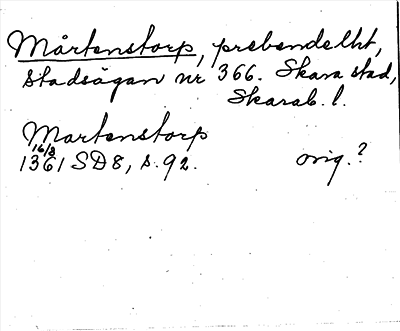 Mårtenstorp, prebendelht,
Stadsägan nr 366. Skara stad,
Skarab. l.
Martenstorp
16/3
1361 SD8, s. 92. orig.?